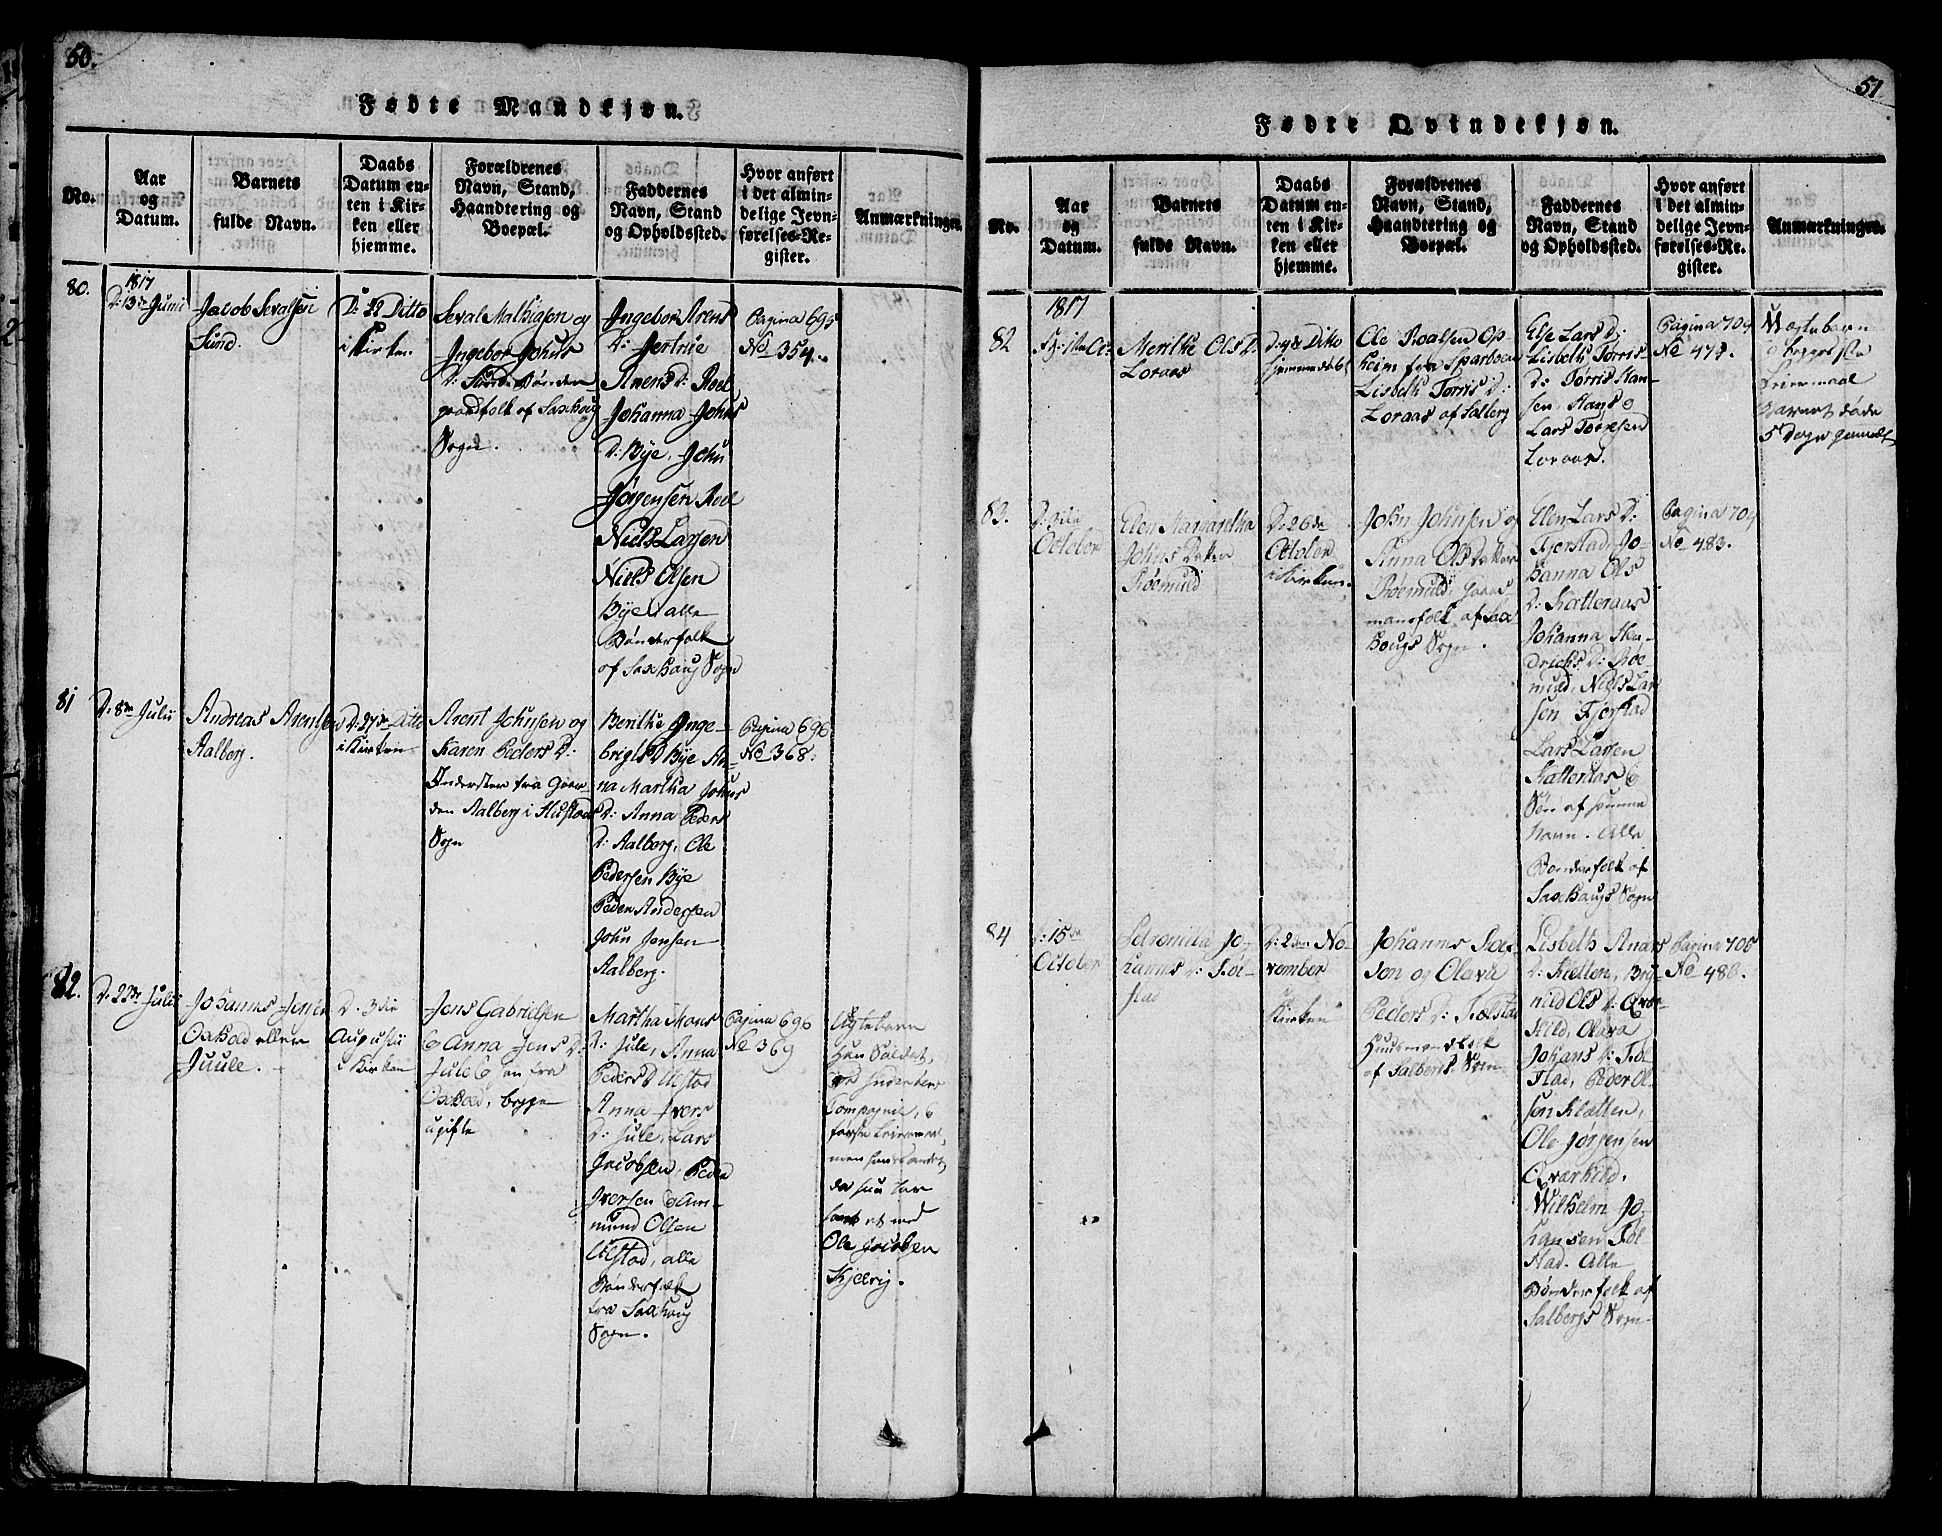 50.
Fødte Mandkjøn.
No.
Aar
og
Datum.
Barnets
fulde Navn.
Daabs
Datum en-
ten i Kir-
ken eller
hjemme.
Forældrenes
Navn, Stand,
Haandtering og
Boepæl.
Faddernes
Navn, Stand
og Opholdssted.
Hvor anført
i det almin-
delige Jevn-
førelses-Re-
gister.
Anmærkninger.
80.
1817
D: 13de Junii
Jacob Sevalsen
Sund.
D: 22 Ditto
i Kirken
Seval Mathiasen og
Ingebor Johns
D: Sund. Bønder
gaardfolk af Saxhoug
Sogn.
Ingebor Arens
D: Jertrue
Arens D: Roel
Johanna Johns
D: Bye, John
Jørgensen Roel
Niels Larsen
Niels Olsen
Bye, alle
Bønderfolk
af Saxhaug Sogn
Pagina 695
No 354.
81
D: 8de Julii
Andreas Arentsen
Aalberg.
D: 27de Ditto
i Kirken
Arent Johnsen og
Karen Peders D:
Inderster fra Gaar-
den Aalberg i Hustad
Sogn
Berithe Inge-
brigts D Bye An-
na Martha Johns
D: Anna Peders
D: Aalberg, Ole
Pedersen Bye
Peder Andersen
John Jensen
Aalberg.
Pagina 696
No 368.
82.
D: 22de Julii
Johannes Jensen
Oxhod eller
Juule.
D. 3die
Augustii
i Kirken
Jens Gabrielsen
& Anna Jens D:
Jule & en fra
Oxhod, begge
ugifte
Martha Mons
D: Jule, Anna
Peders D Ulstad
Anna Ivers
D: Jule, Lars
Jacobsen, Peder
Iversen & Am-
mund Olsen
Ulstad, alle
Bønderfolk
fra Saxhoug
Sogn.
Pagina 696
No 369
Uægtebarn
Han Soldat,
Compagnie, &
første Leiermaal,
men
da hun har
havt et med
Ole Jacobsen
Kjelvig.
51
Fødte Qvindekjøn.
No.
Aar
og
Datum.
Barnets
fulde Navn.
Daabs
Datum en-
ten i Kir-
ken eller
hjemme.
Forældrenes
Navn, Stand,
Haandtering og
Boepæl.
Faddernes
Navn, Stand
og Opholdssted.
Hvor anført
i det almin-
delige Jevn-
førelses-Re-
gister.
Anmærkninger.
82
1817
Merithe Ols D:
Loraas
Ditto
hjemmedøbt
Ole Roalsen Op
heim fra Sparboen
Lisbeth Tørris D:
Loraas af Salberg
Else Lars D:
Lisbeth Tørris
D: Tørris Han-
sen, Hans &
Lars Tørresen
Loraas.
Pagina 704
No 478.
Uægtebarn
& begges 1ste
Leiermaal
Barnet døde
5 Dage gammelt
83.
D: 3die
October
Elen Margaretha
Johns Datter
Røemuld
D: 26de
October
i Kirken.
John Johnsen og
Anna Ols Datter
Røemuld, Gaard
mansfolk af Sax
hougs Sogn.
Elen Lars D:
Fjerstad, Jo-
hanna Ols
D: Katteraas
Johanna Hen-
drichs D: Røe-
muld, Niels Lar
sen Fjerstad
Lars Larsen
Katteraas &
Søn af samme
Navn. Alle
Bønderfolk af
Saxhaugs Sogn
Pagina 704
No 483.
84
D: 15de
October
Petromilla Jo-
hannes D: Føl-
stad
D: 2den No-
vember
i Kirken
Johannes
sen og Olava
Peders D: Følstad
Huusmandsfolk
af Salbergs Sogn
Lisbeth Anders
D: Kletten, Bry-
nild Ols D: Qvær-
kild, Olava
Johans D: Føl
stad, Peder Ol-
sen Kletten,
Ole Jørgensen
Qværkild.
Wilhelm Jo-
hansen Føl
stad. Alle
Bønderfolk af
Salbergs Sogn
Pagina 705
No 486.